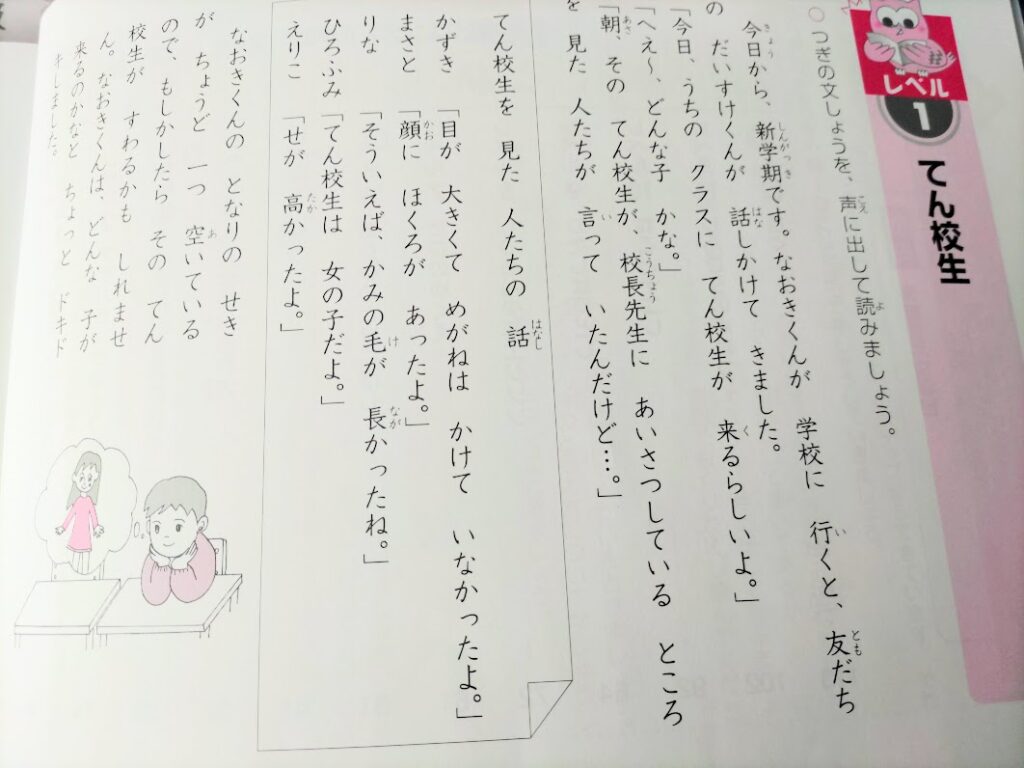 レベル
1
てん校生
つぎの文しょうを、声に出して読みましょう。
今日から、新学期です。なおきくんが 学校に 行くと、友だち
の だいすけくんが 話しかけて きました。
「今日、うちの クラスに てん校生が 来るらしいよ。」
「へえ〜、どんな子 かな。」
「朝、その てん校生が、校長先生に あいさつしている ところ
を 見た 人たちが 言って いたんだけど…。」
てん校生を 見た 人たちの 話
かずき 「目が 大きくて めがねは かけて いなかったよ。」
まさと 「顔に ほくろが あったよ。」
りな 「そういえば、かみの毛が 長かったね。」
ひろふみ 「てん校生は 女の子だよ。」
えりこ 「せが 高かったよ。」
なおきくんの となりの せき
が ちょうど 一つ 空いている
ので、もしかしたら その てん
校生が すわるかも しれませ
ん。なおきくんは、どんな 子が
来るのかなと ちょっと ドキド
キしました。